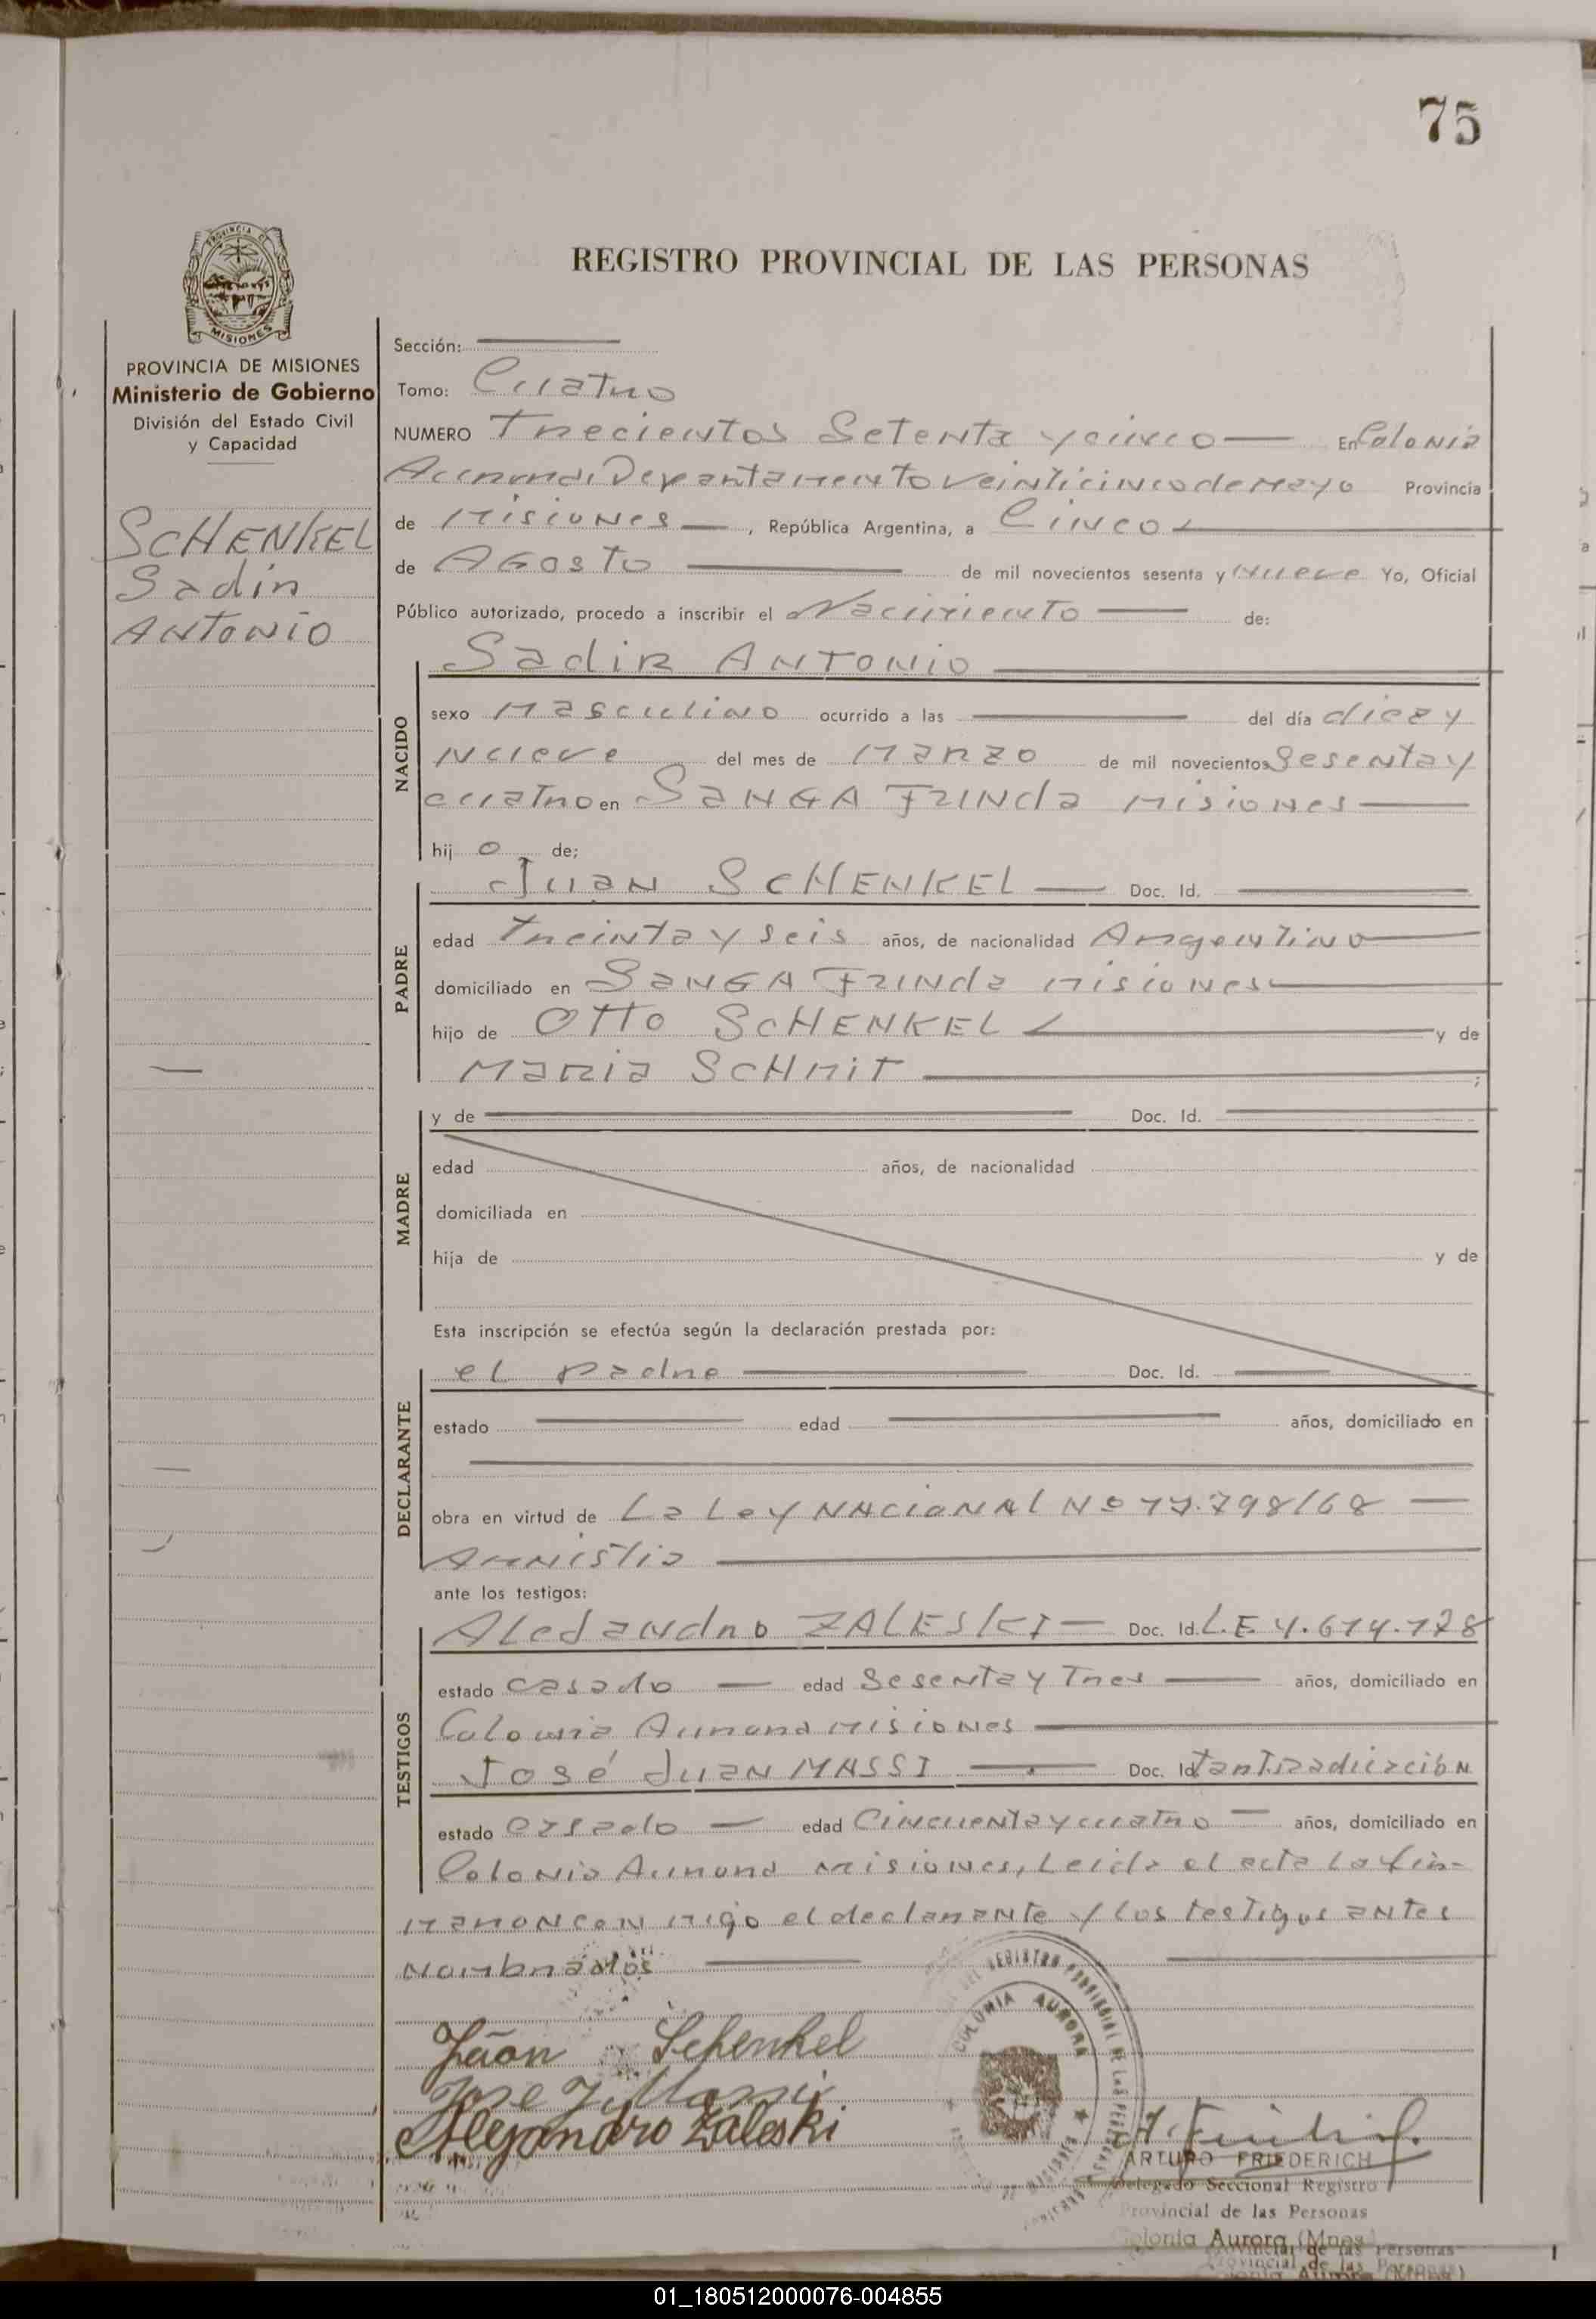 75
PROVINCIA DE
MISIONES
REGISTRO PROVINCIAL DE LAS PERSONAS
PROVINCIA DE MISIONES
Ministerio de Gobierno
División del Estado Civil
y Capacidad
SCHENKEL
Sadir
ANTONIO
Sección:
Tomo: Cuatro
NUMERO Trecientos Setenta y cinco En Colonia
Aurora, Departamento Veinticinco de Mayo Provincia
de Misiones, República Argentina, a Cinco
de AGosto de mil novecientos sesenta y Nueve Yo, Oficial
Público autorizado, procedo a inscribir el Nacimiento de:
Sadir ANTONIO
NACIDO
sexo Masculino ocurrido a las del día diez y
Nueve del mes de Marzo de mil novecientos Sesenta y
cuatro en SANGA FUNda Misiones
hij o de;
PADRE
Juan SCHENKEL Doc. Id.
edad Treinta y seis años, de nacionalidad Argentino
domiciliado en SANGA FUNda Misiones
hijo de OTTO SCHENKEL y de
Maria SCHMIT ;
MADRE
y de Doc. Id.
edad años, de nacionalidad
domiciliada en
hija de y de
Esta inscripción se efectúa según la declaración prestada por:
DECLARANTE
el padre Doc. Id.
estado edad años, domiciliado en
obra en virtud de La Ley NACioNAl Nº 17.798/68
Amnistia
ante los testigos:
TESTIGOS
Alejandro ZALESKI Doc. Id. L.E 4.614.178
estado casado edad Sesenta y Tres años, domiciliado en
Colonia Aurora Misiones
José Juan MASSI Doc. Id
estado casado edad Cincuenta y cuatro años, domiciliado en
Colonia Aurora Misiones, Leida el acta La fir-
maron con migo el declarante y los testigos antes
Nombrados
Jãon Schenkel
José J. Massi
Alejandro Zaleski
COLONIA AURORA
ARTURO FRIEDERICH
Delegado Seccional Registro
Provincial de las Personas
Colonia Aurora (Mnes.)
01_180512000076-004855